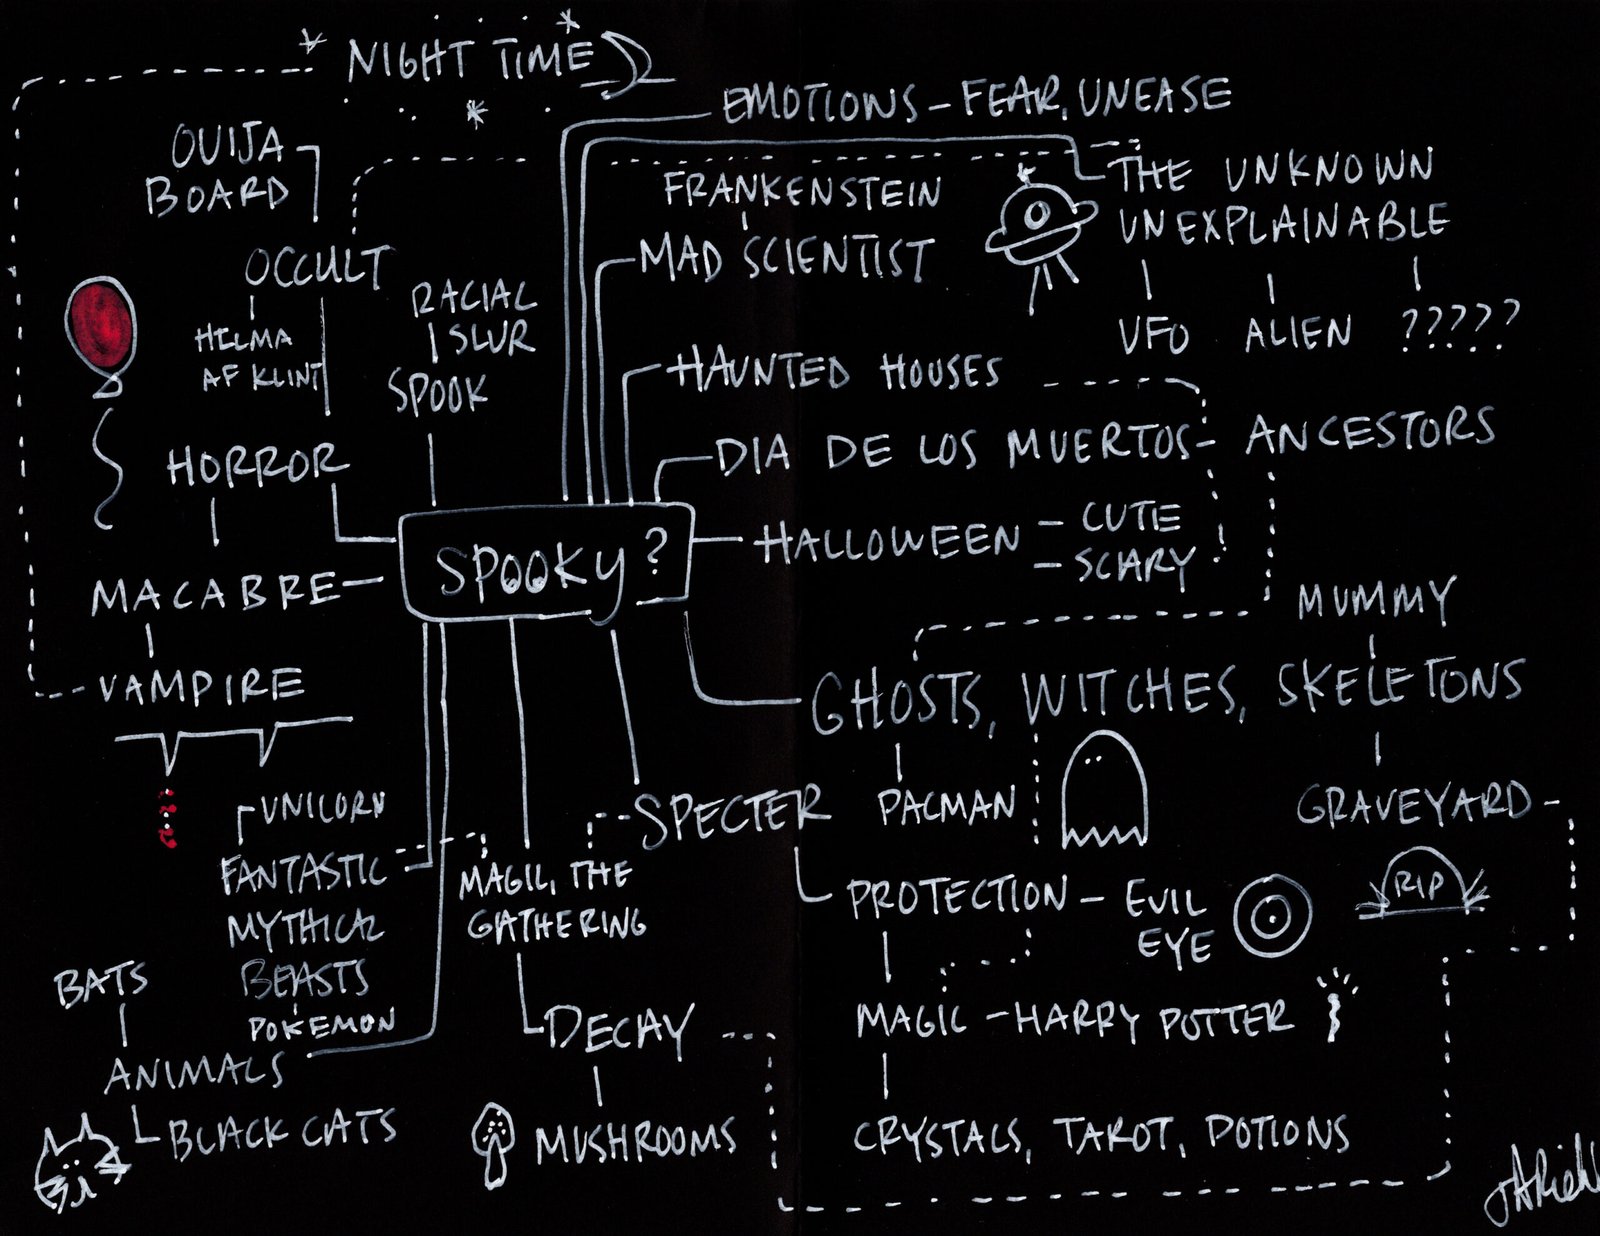 NIGHT TIME
EMOTIONS - FEAR, UNEASE
OUIJA
BOARD
THE UNKNOWN
UNEXPLAINABLE
FRANKENSTEIN
MAD SCIENTIST
OCCULT
HILMA
AF KLINT
RACIAL
SLUR
SPOOK
UFO ALIEN ?????
HAUNTED HOUSES
DIA DE LOS MUERTOS - ANCESTORS
HORROR
HALLOWEEN - CUTE
- SCARY
SPOOKY?
MACABRE
VAMPIRE
MUMMY
GHOSTS, WITCHES, SKELETONS
UNICORN
FANTASTIC
MYTHICAL
BEASTS
POKEMON
MAGIC, THE
GATHERING
SPECTER
PACMAN
GRAVEYARD
RIP
PROTECTION - EVIL
EYE
BATS
ANIMALS
BLACK CATS
DECAY
MUSHROOMS
MAGIC - HARRY POTTER
CRYSTALS, TAROT, POTIONS